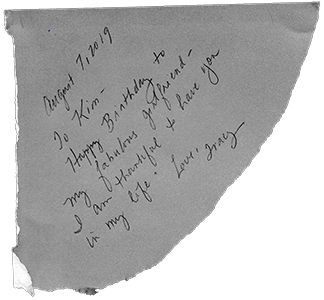 August 7, 2019
To Kim-
Happy Birthday to
my fabulous girlfriend-
I am thankful to have you
in my life. Love, Tracy